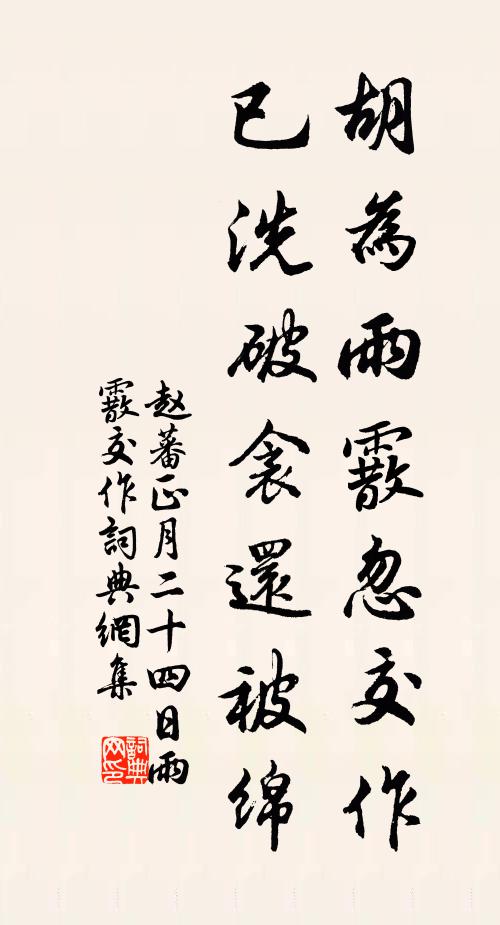 胡為雨霰忽交作
已洗破衾還被綿
赵蕃正月二十四日雨
霰交作詞典網集
詞典
网印